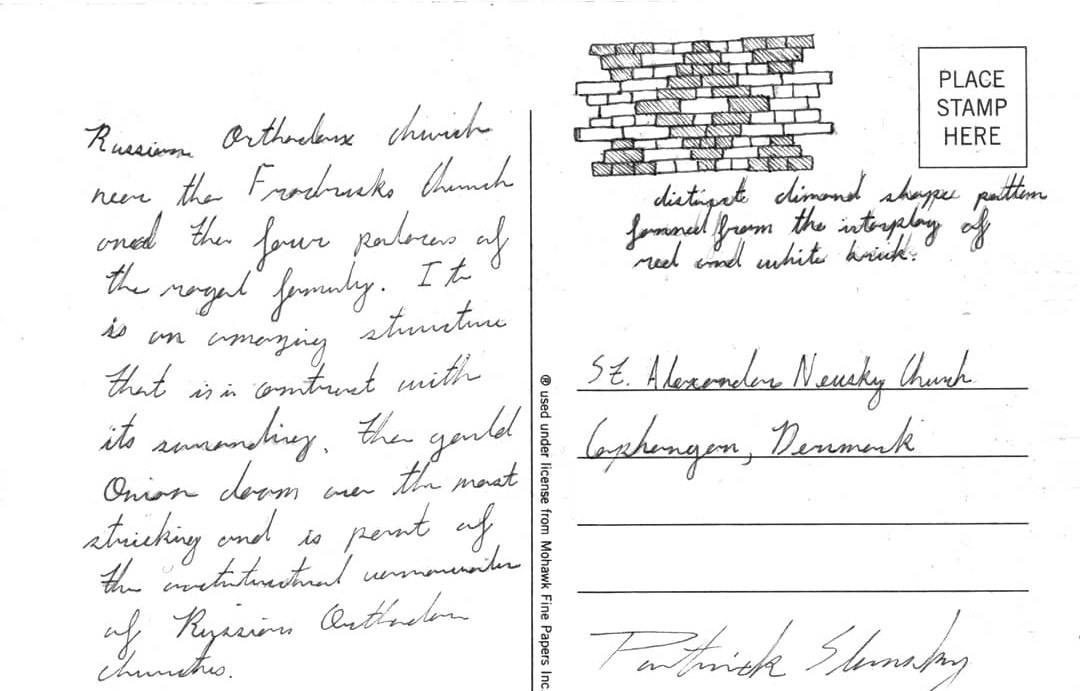 Russian Orthodox church
near the Fredricks Church
and the four palaces of
the royal family. It
is an amazing structure
that is in contrast with
its surronding. The gould
Onion doom are the most
stricking and is part of
the
of Russian Orthodox
churches.
PLACE
STAMP
HERE
distinct dimond shape pattern
formed from the interplay of
red and white brick.
® used under license from Mohawk Fine Papers Inc.
St. Alexander Nevsky Church
Cophengen, Denmark
Patrick